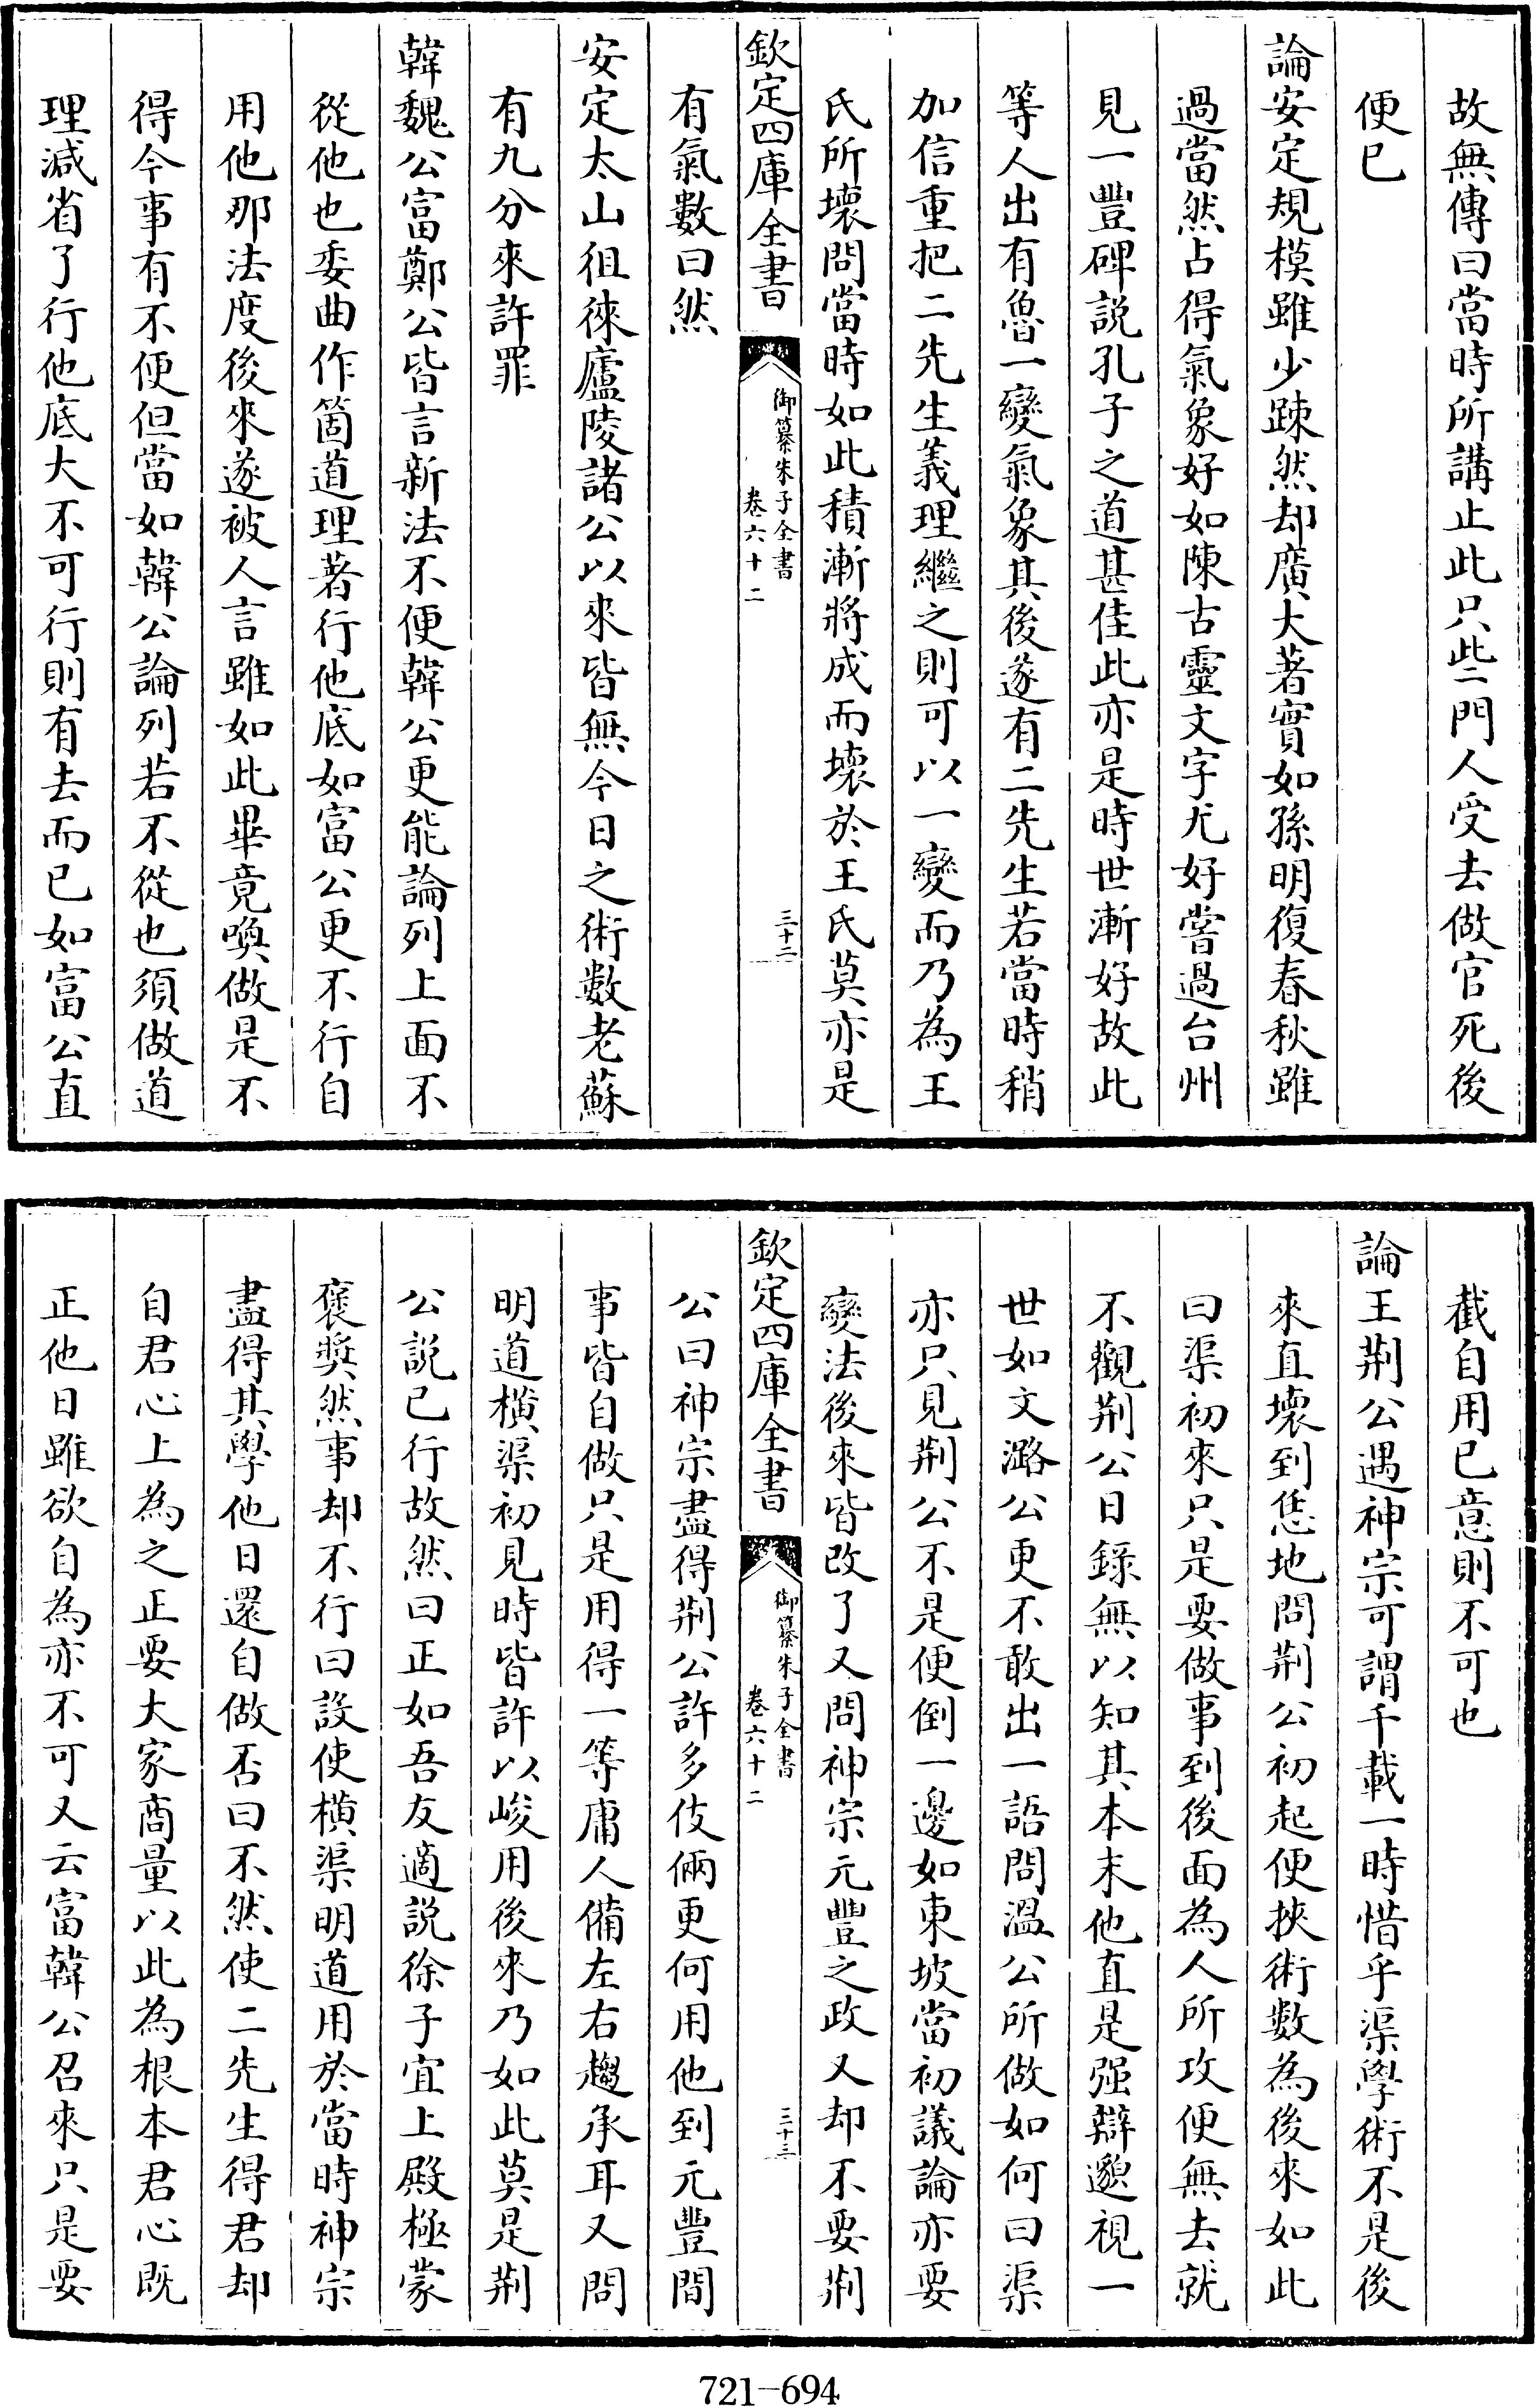 故無傳曰當時所講止此只些二門人受去做官死後
便已
論安定規模雖少踈然却廣大著實如孫明復春秋雖
過當然占得氣象好如陳古靈文字尤好嘗過台州
見一豐碑説孔子之道甚佳此亦是時世漸好故此
等人出有魯一變氣象其後遂有二先生若當時稍
加信重把二先生義理繼之則可以一變而乃為王
氏所壞問當時如此積漸將成而壞於王氏莫亦是
欽定四庫全書
御纂朱子全書
卷六十二
三十二
有氣數曰然
安定太山徂徠廬陵諸公以來皆無今日之術數老蘇
有九分來許罪
韓魏公富鄭公皆言新法不便韓公更能論列上面不
從他也委曲作箇道理著行他底如富公更不行自
用他那法度後來遂被人言雖如此畢竟喚做是不
得今事有不便但當如韓公論列若不從也須做道
理減省了行他底大不可行則有去而已如富公直
截自用已意則不可也
論王荆公遇神宗可謂千載一時惜乎渠學術不是後
來直壞到恁地問荆公初起便挾術數為後來如此
曰渠初來只是要做事到後面為人所攻便無去就
不觀荆公日錄無以知其本末他直是强辯邈視一
世如文潞公更不敢出一語問溫公所做如何曰渠
亦只見荆公不是便倒一邊如東坡當初議論亦要
變法後來皆改了又問神宗元豐之政又却不要荆
欽定四庫全書
御纂朱子全書
卷六十二
三十三
公曰神宗盡得荆公許多伎倆更何用他到元豐間
事皆自做只是用得一等庸人備左右趨承耳又問
明道横渠初見時皆許以峻用後來乃如此莫是荆
公説已行故然曰正如吾友適説徐子宜上殿極蒙
褒奬然事却不行曰設使横渠明道用於當時神宗
盡得其學他日還自做否曰不然使二先生得君却
自君心上為之正要大家商量以此為根本君心既
正他日雖欲自為亦不可又云富韓公召來只是要
721-694